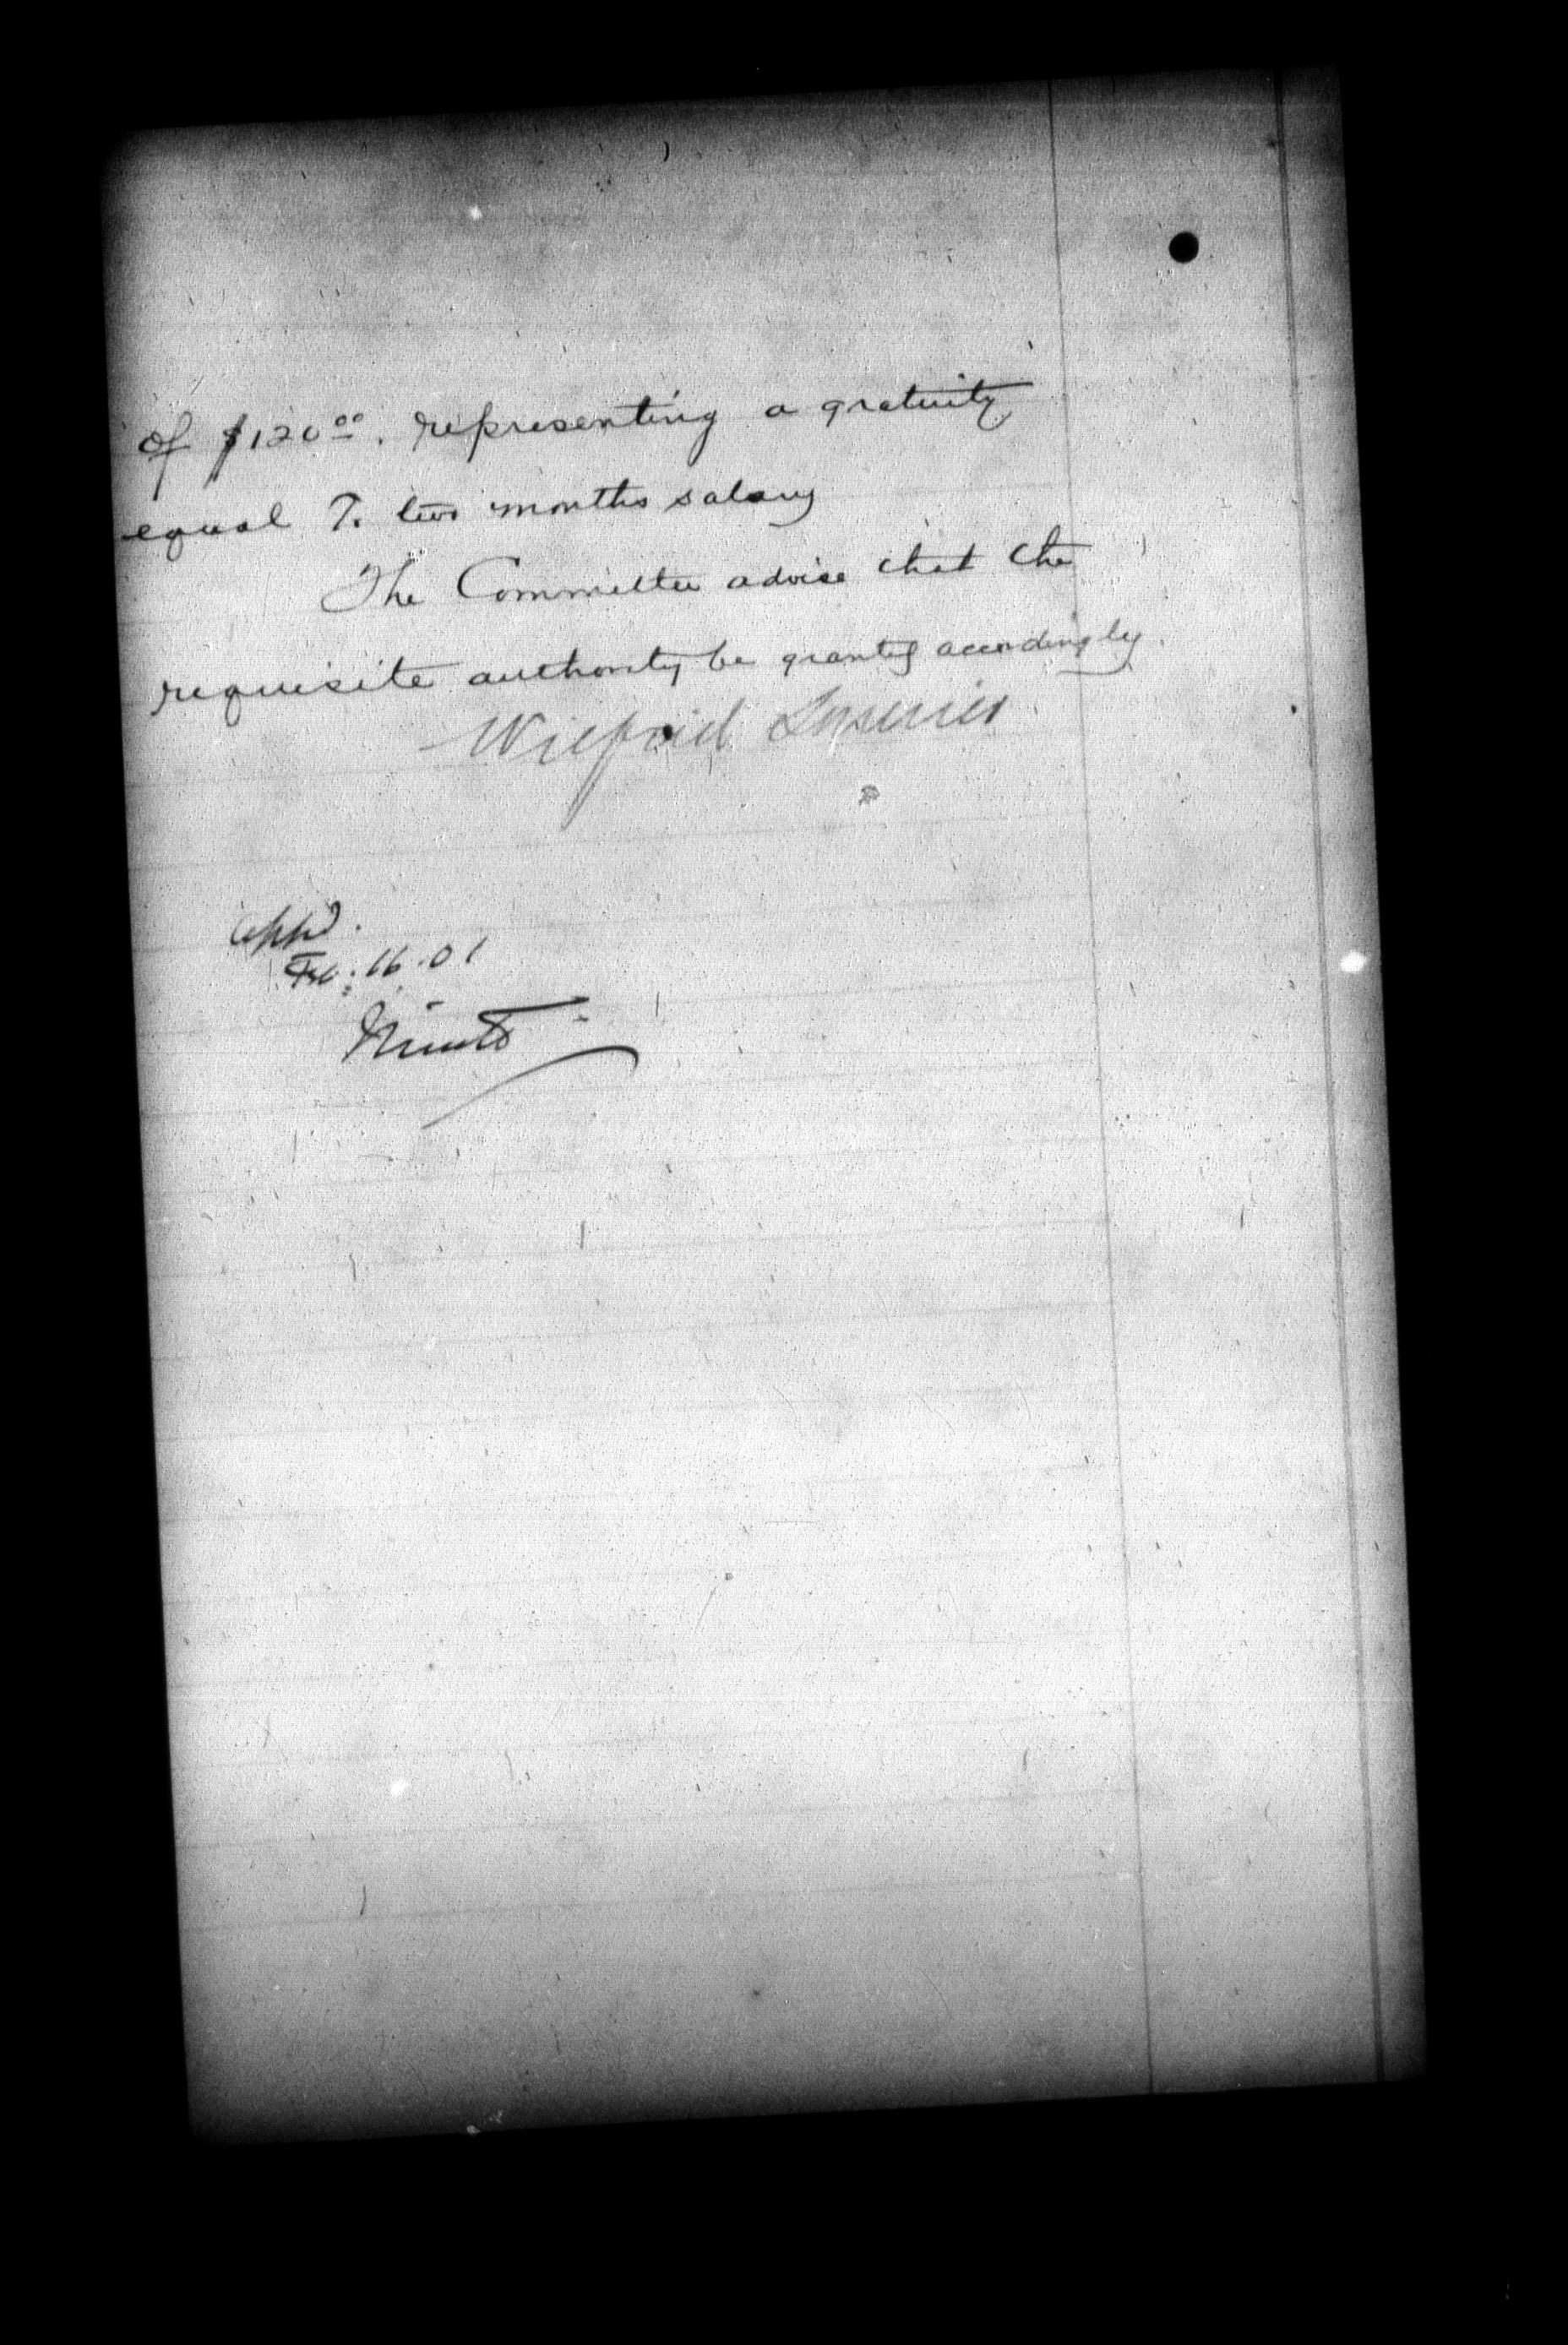 of $120.00. representing a gratuity
equal To two months salary
The Committee advise that the
requisite authority be granted accordingly.
Wilfrid Laurier
Appd.
Feb: 16.01
Minto